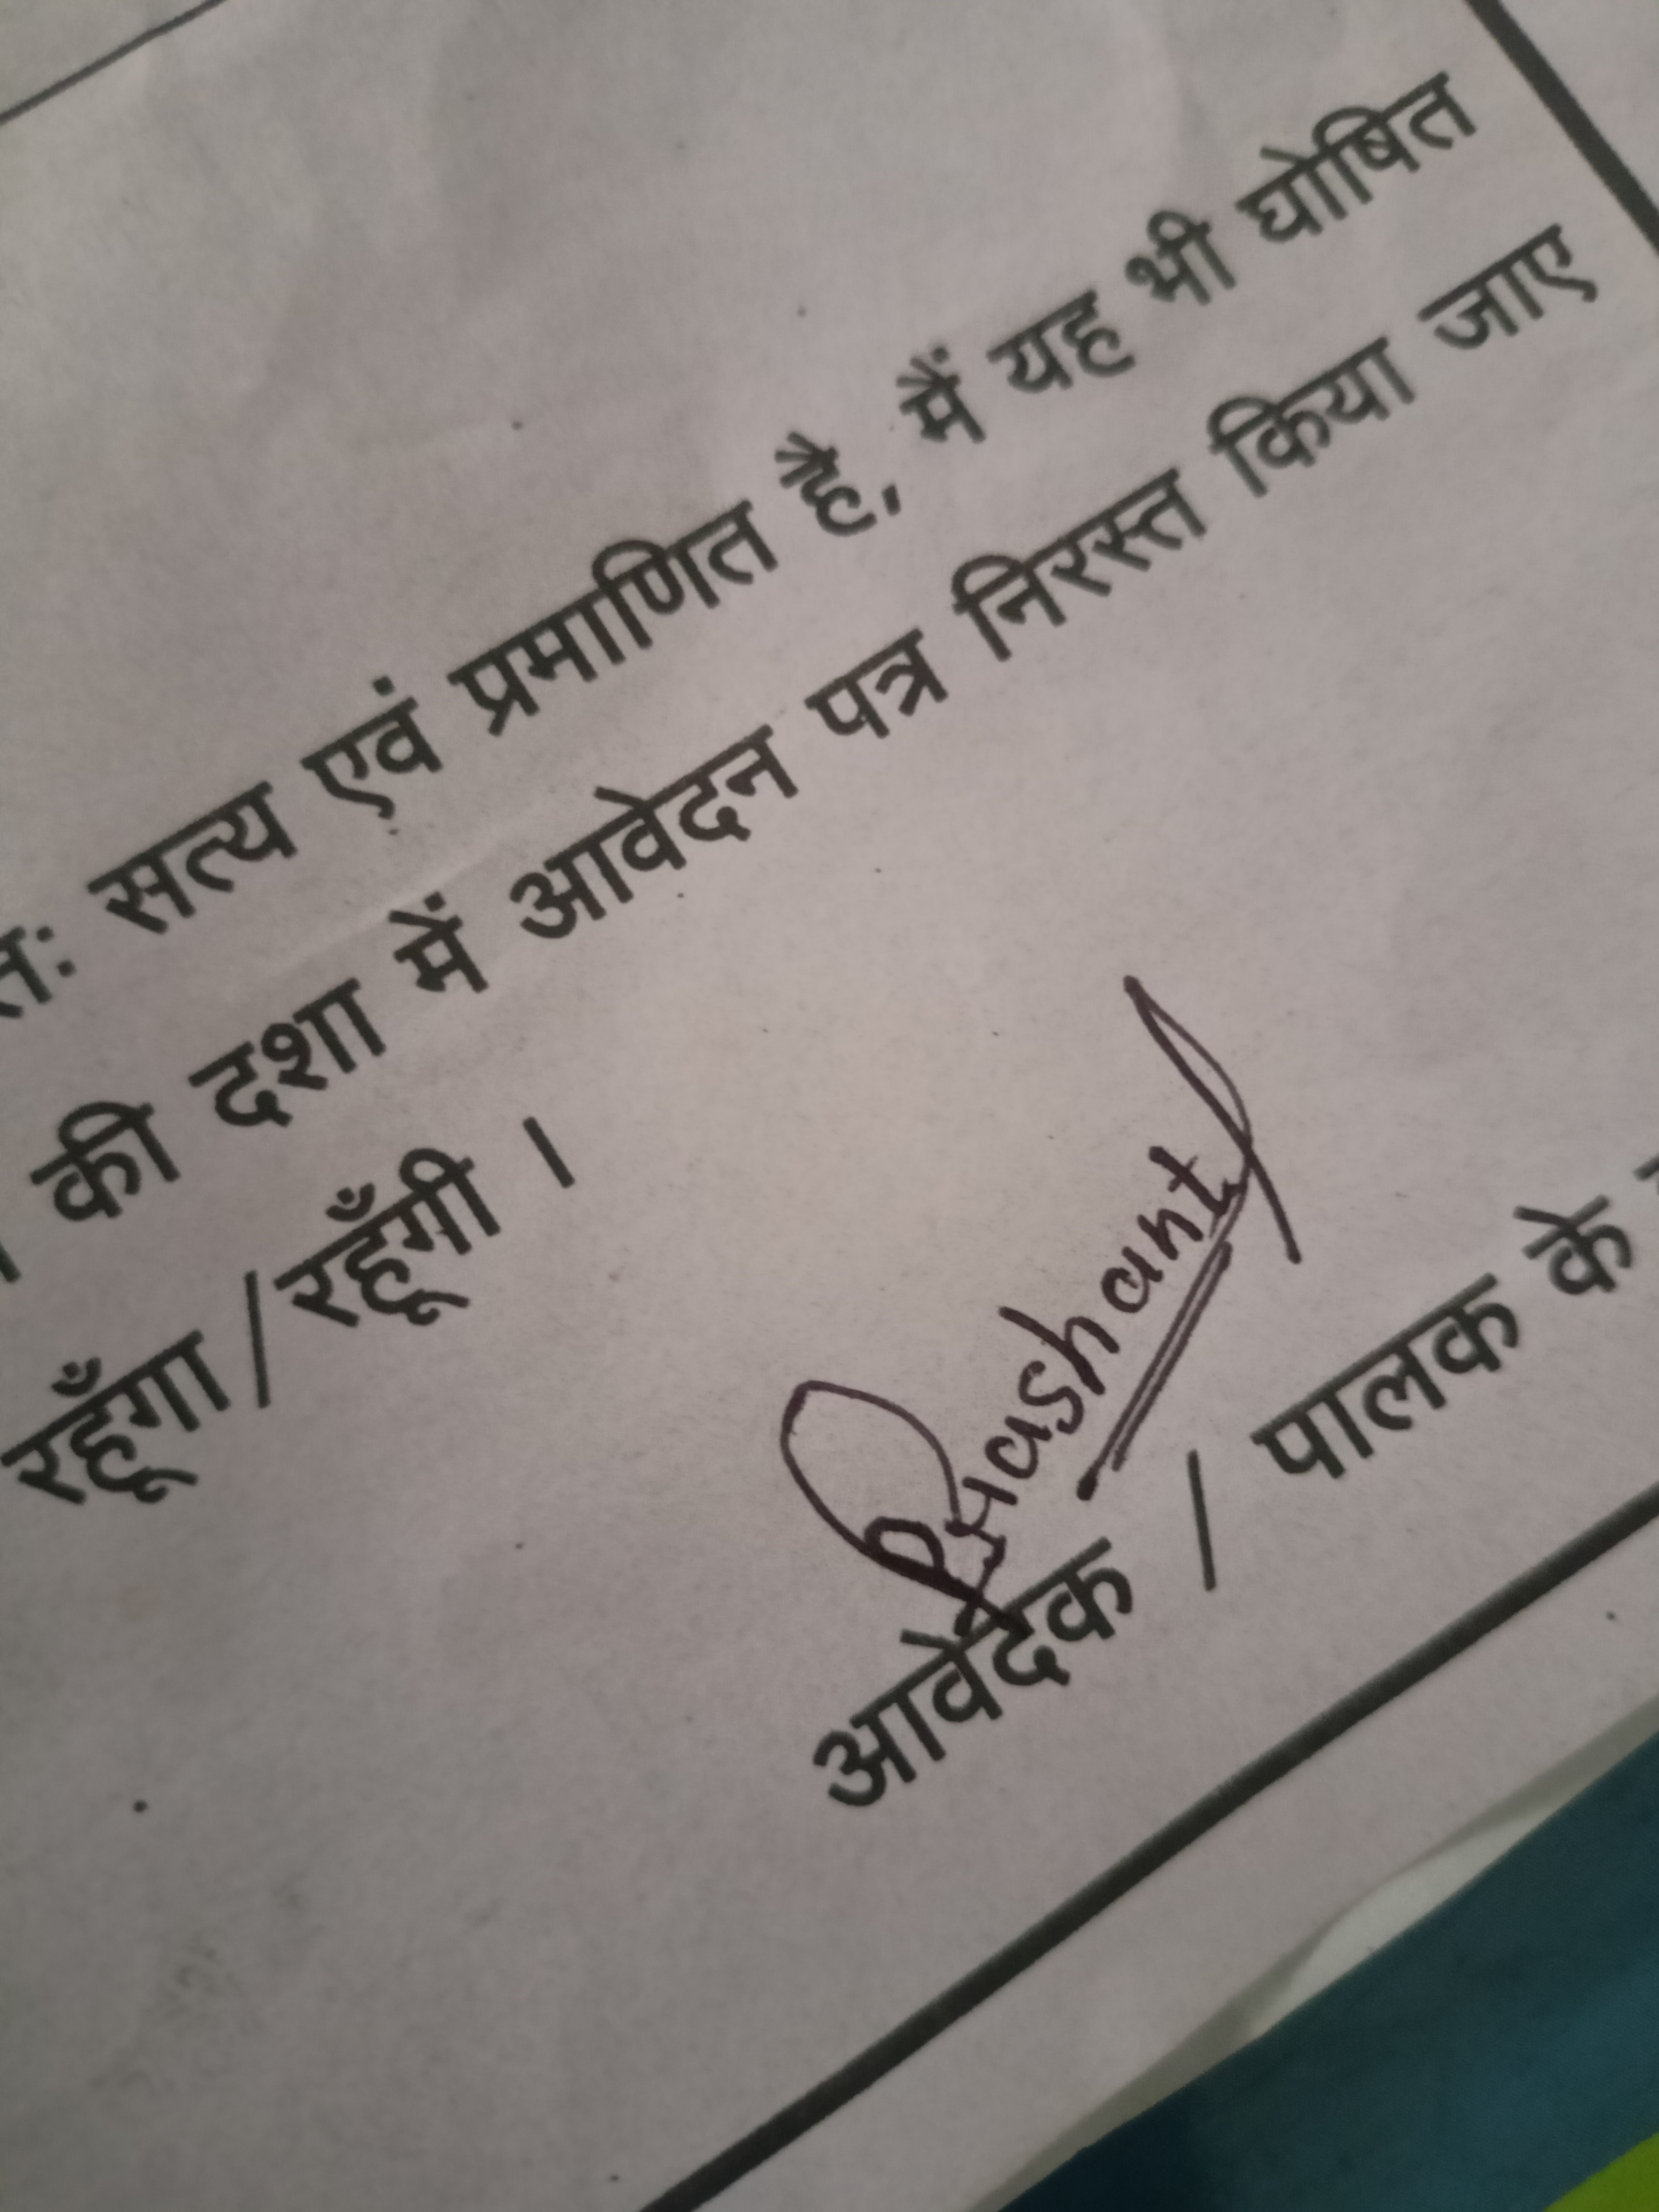 तः सत्य एवं प्रमाणित है, मैं यह भी घोषित
की दशा में आवेदन पत्र निरस्त किया जाए
रहूँगा/रहूँगी ।
Prashant
आवेदक / पालक के